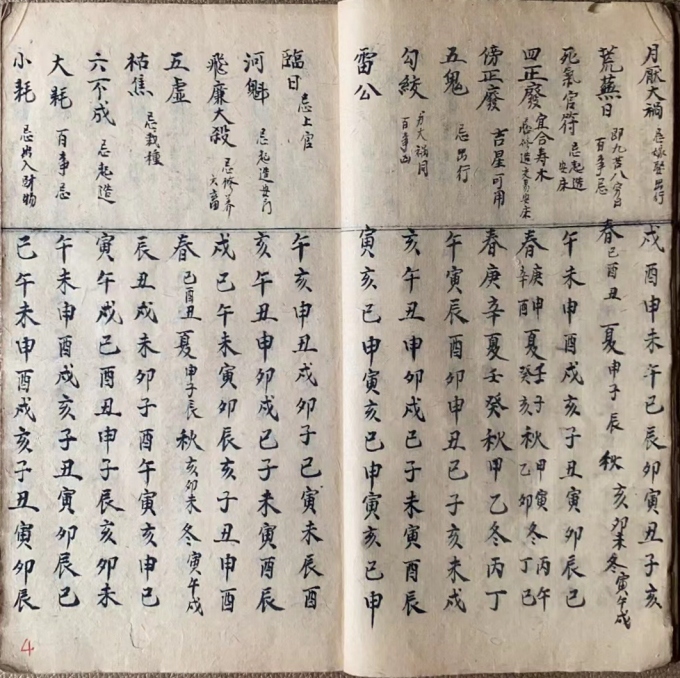 月厭大禍 忌嫁娶出行 戌酉申未午巳辰卯寅丑子亥
荒蕪日 即九苦八穷日 百事忌 春巳酉丑 夏申子辰 秋亥卯未 冬寅午戌
死氣官符 忌起造安床 午未申酉戌亥子丑寅卯辰巳
四正廢 宜合寿木 忌修造交易安床 春庚申辛酉 夏壬子癸亥 秋甲寅乙卯 冬丙午丁巳
傍正廢 吉星可用 春庚辛夏壬癸秋甲乙冬丙丁
五鬼 忌出行 午寅辰酉卯申丑巳子亥未戌
勾絞 大禍同 百事凶 亥午丑申卯戌巳子未寅酉辰
雷公 寅亥巳申寅亥巳申寅亥巳申
臨日 忌上官 午亥申丑戌卯子巳寅未辰酉
河魁 忌起造安门 亥午丑申卯戌巳子未寅酉辰
飛廉大殺 忌修养六畜 戌巳午未寅卯辰亥子丑申酉
五虛 春巳酉丑 夏申子辰 秋亥卯未 冬寅午戌
枯焦 忌栽種 辰丑戌未卯子酉午寅亥申巳
六不成 忌起造 寅午戌巳酉丑申子辰亥卯未
大耗 百事忌 午未申酉戌亥子丑寅卯辰巳
小耗 忌出入財物 巳午未申酉戌亥子丑寅卯辰
4